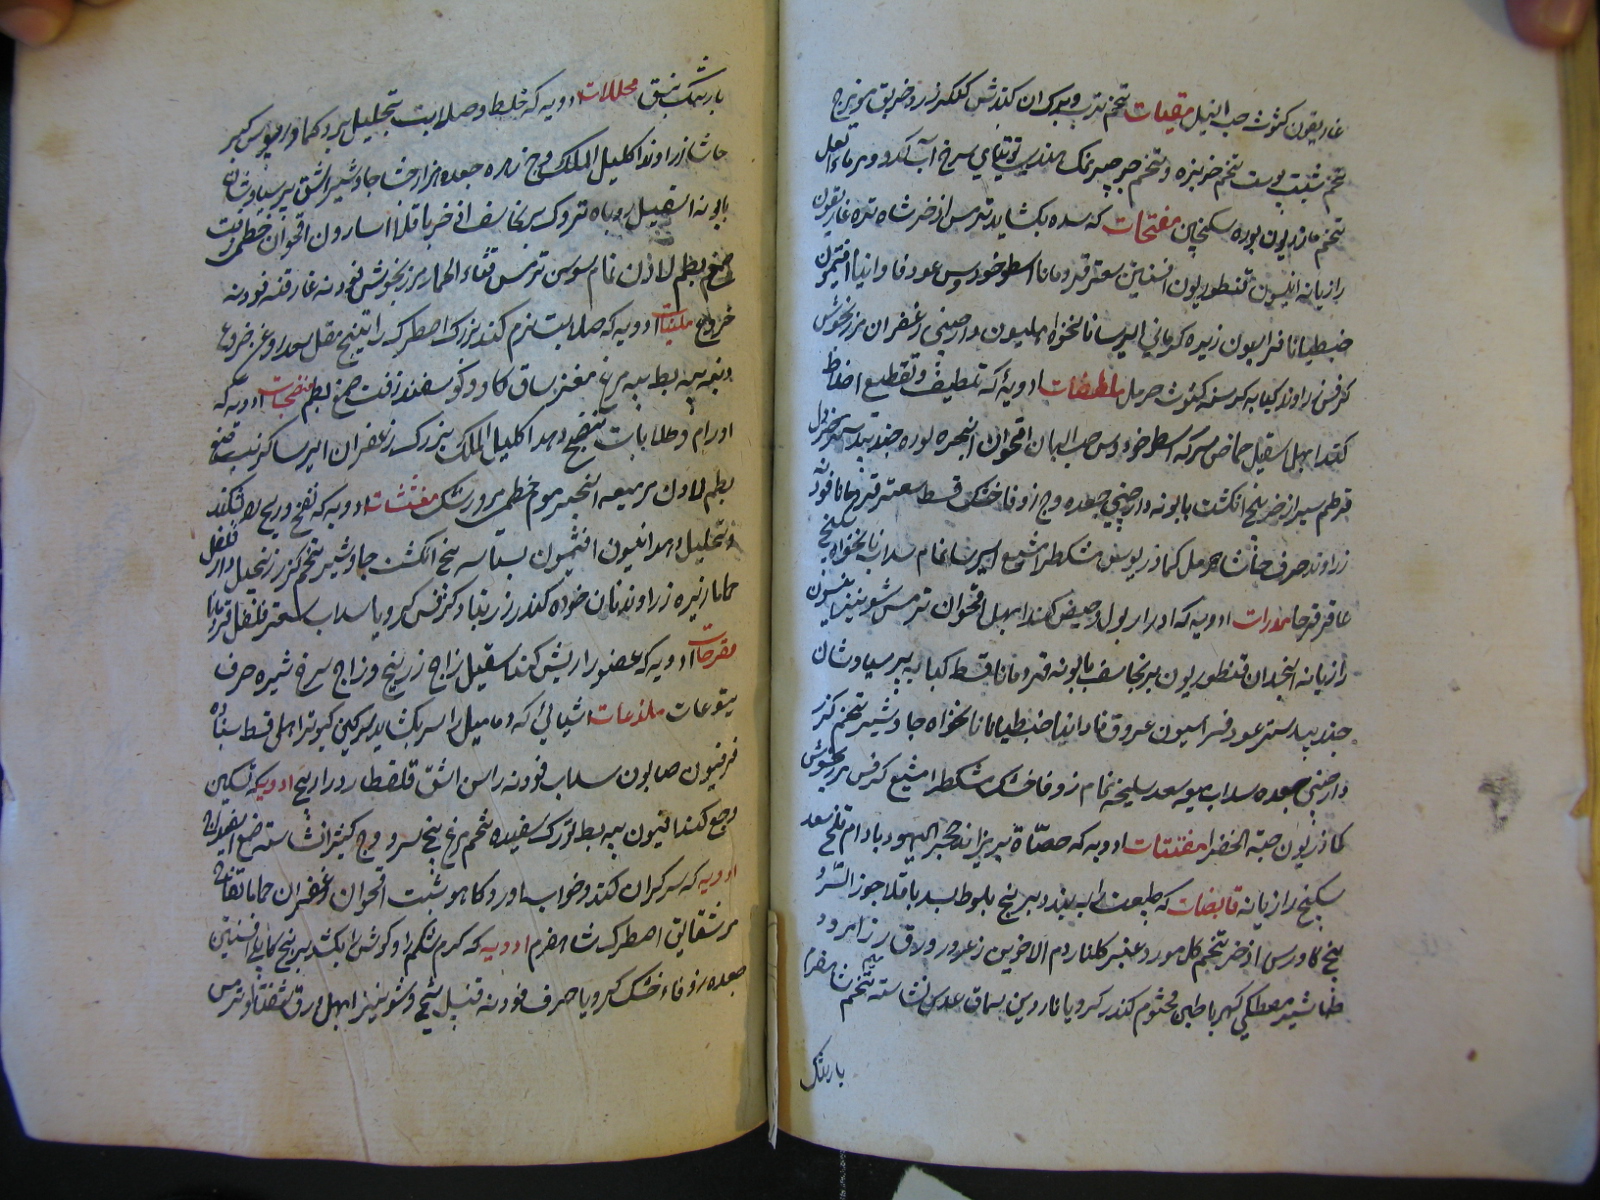 غاریقون کثوث حب النیل مقیات تخم ترب و برک ان کندش کنکرزد و خربق مویزج
تخم شبت پوست تخم خربزه و تخم جرجیر نمک هندی توتیای سرخ آب کدو و
تخم مازریون بوره سکنجبین مفتحات که سده بکشاید ترمس اذخر شاهتره غاریقون
رازیانه انیسون قنطوریون افسنتین سعتر قردمانا اسطوخودوس عود فاوانیا افتیمون
جنطیانا فراسیون زیره کرمانی ایرسا نانخواه هلیون دارصینی زعفران مرزنجوش
کرفس زراوند کبابه کرسنه کثوث حرمل ملطفات ادویهٔ که تلطیف و تقطیع اخلاط
کنند ابهل اسقیل حماض سرکه اسطوخودوس حب البان اقحوان انجره بوره جندبیدستر خردل
قرطم سیر اذخر بنج انکشت بابونه دارصینی جعده وج زوفا خشک قسط سعتر قردمانا فودنه
زراوند حرف حاشا حرمل کماذریوس مشکطرامشیع ایرسا نمام سداب نانخواه سکبینج
عاقرقرحا مدرات ادویه که ادرار بول و حیض کند ابهل اقحوان ترمس شونیز انیسون
رازیانه انجدان قنطوریون برنجاسف بابونه قردمانا قسط کبابه پرسیاوشان
جندبیدستر عود فراسیون عروق فاوانیا جنطیانا نانخواه جاوشیر تخم کزر
دارصینی جعده سداب میعه سعد سلیخه نمام زوفا خشک مشکطرامشیع کرفس مرزنجوش
کماذریون حبة الخضرا مفتتات ادویه که حصاة بریزاند حجر الیهود بادام تلخ سعد
سکبینج رازیانه قابضات که طبیعت را ببندد برنج بلوط بسد باقلا جوز السرو
بنج کاورس اذخر تخم کل مورد عنبر کلنار دم الاخوین زعرور ورق
طباشیر مصطکی کهربا طین مختوم کندر کرویا ناردین سماق عدس نشاسته تخم
بارتنک
بارتنک نبق محللات ادویه که خلط و صلابت تحلیل برد کماذریوس کبر
حاشا زراوند اکلیل الملک وج زهره جعده هزارخشا جاوشیر اشق پرسیاوشان
بابونه اسقیل روباه تروک برنجاسف اذخر باقلا اسارون اقحوان خطمی زفت
صمغ بطم لاذن نمام سوسن ترمس قثاء الحمار مرزنجوش فودنه غار قنه فودنه
خروع ملینات ادویه که صلابت نرم کند بزرک اصطرک راتینج مقل سعد روغن خروع
و پیه بط پیه مرغ مغز ساق کاو و کوسفند زفت صمغ بطم منضجات ادویه که
اورام و صلابات نضج دهد اکلیل الملک بزرک زعفران ایرسا کرنب صمغ
بطم لادن مر میعه انجیر موم خطمی مفشات ادویه که نفخ و ریح بشکند
و تحلیل دهد انیسون افتیمون بسباسه بنج انکشت جاوشیر تخم کزر زنجبیل دارفلفل
حماما زیره زراوند نانخواه کندر زرنباد کرفس کرویا سداب سعتر فلفل قردمانا
مقرحات ادویه که عضو را ریش کند اسقیل زاج زرنیخ و زاج سرخ شیره حرف
یتوعات ملذعات اشیائی که دمامیل را سر بکشاید سرکین کبوتر ابهل قسط
فرفیون صابون سداب فودنه راسن اشق قلقطار ادویه که تسکین
وجع کند افیون پیه بط ترک سفیده تخم مرغ بنج سرو وج کثیرا نشاسته صمغ
ادویه که سرکران کند و خواب اورد کاهو شبت اقحوان زعفران حماما تفاح
مر شقایق اصطرک ادویه که کرم شکم را و کوش را بکشد برنج کابلی افسنتین
جعده زوفاء خشک کرویا حرف فودنه قنبیل شیح و شونیز ابهل ورق شفتالو ترمس